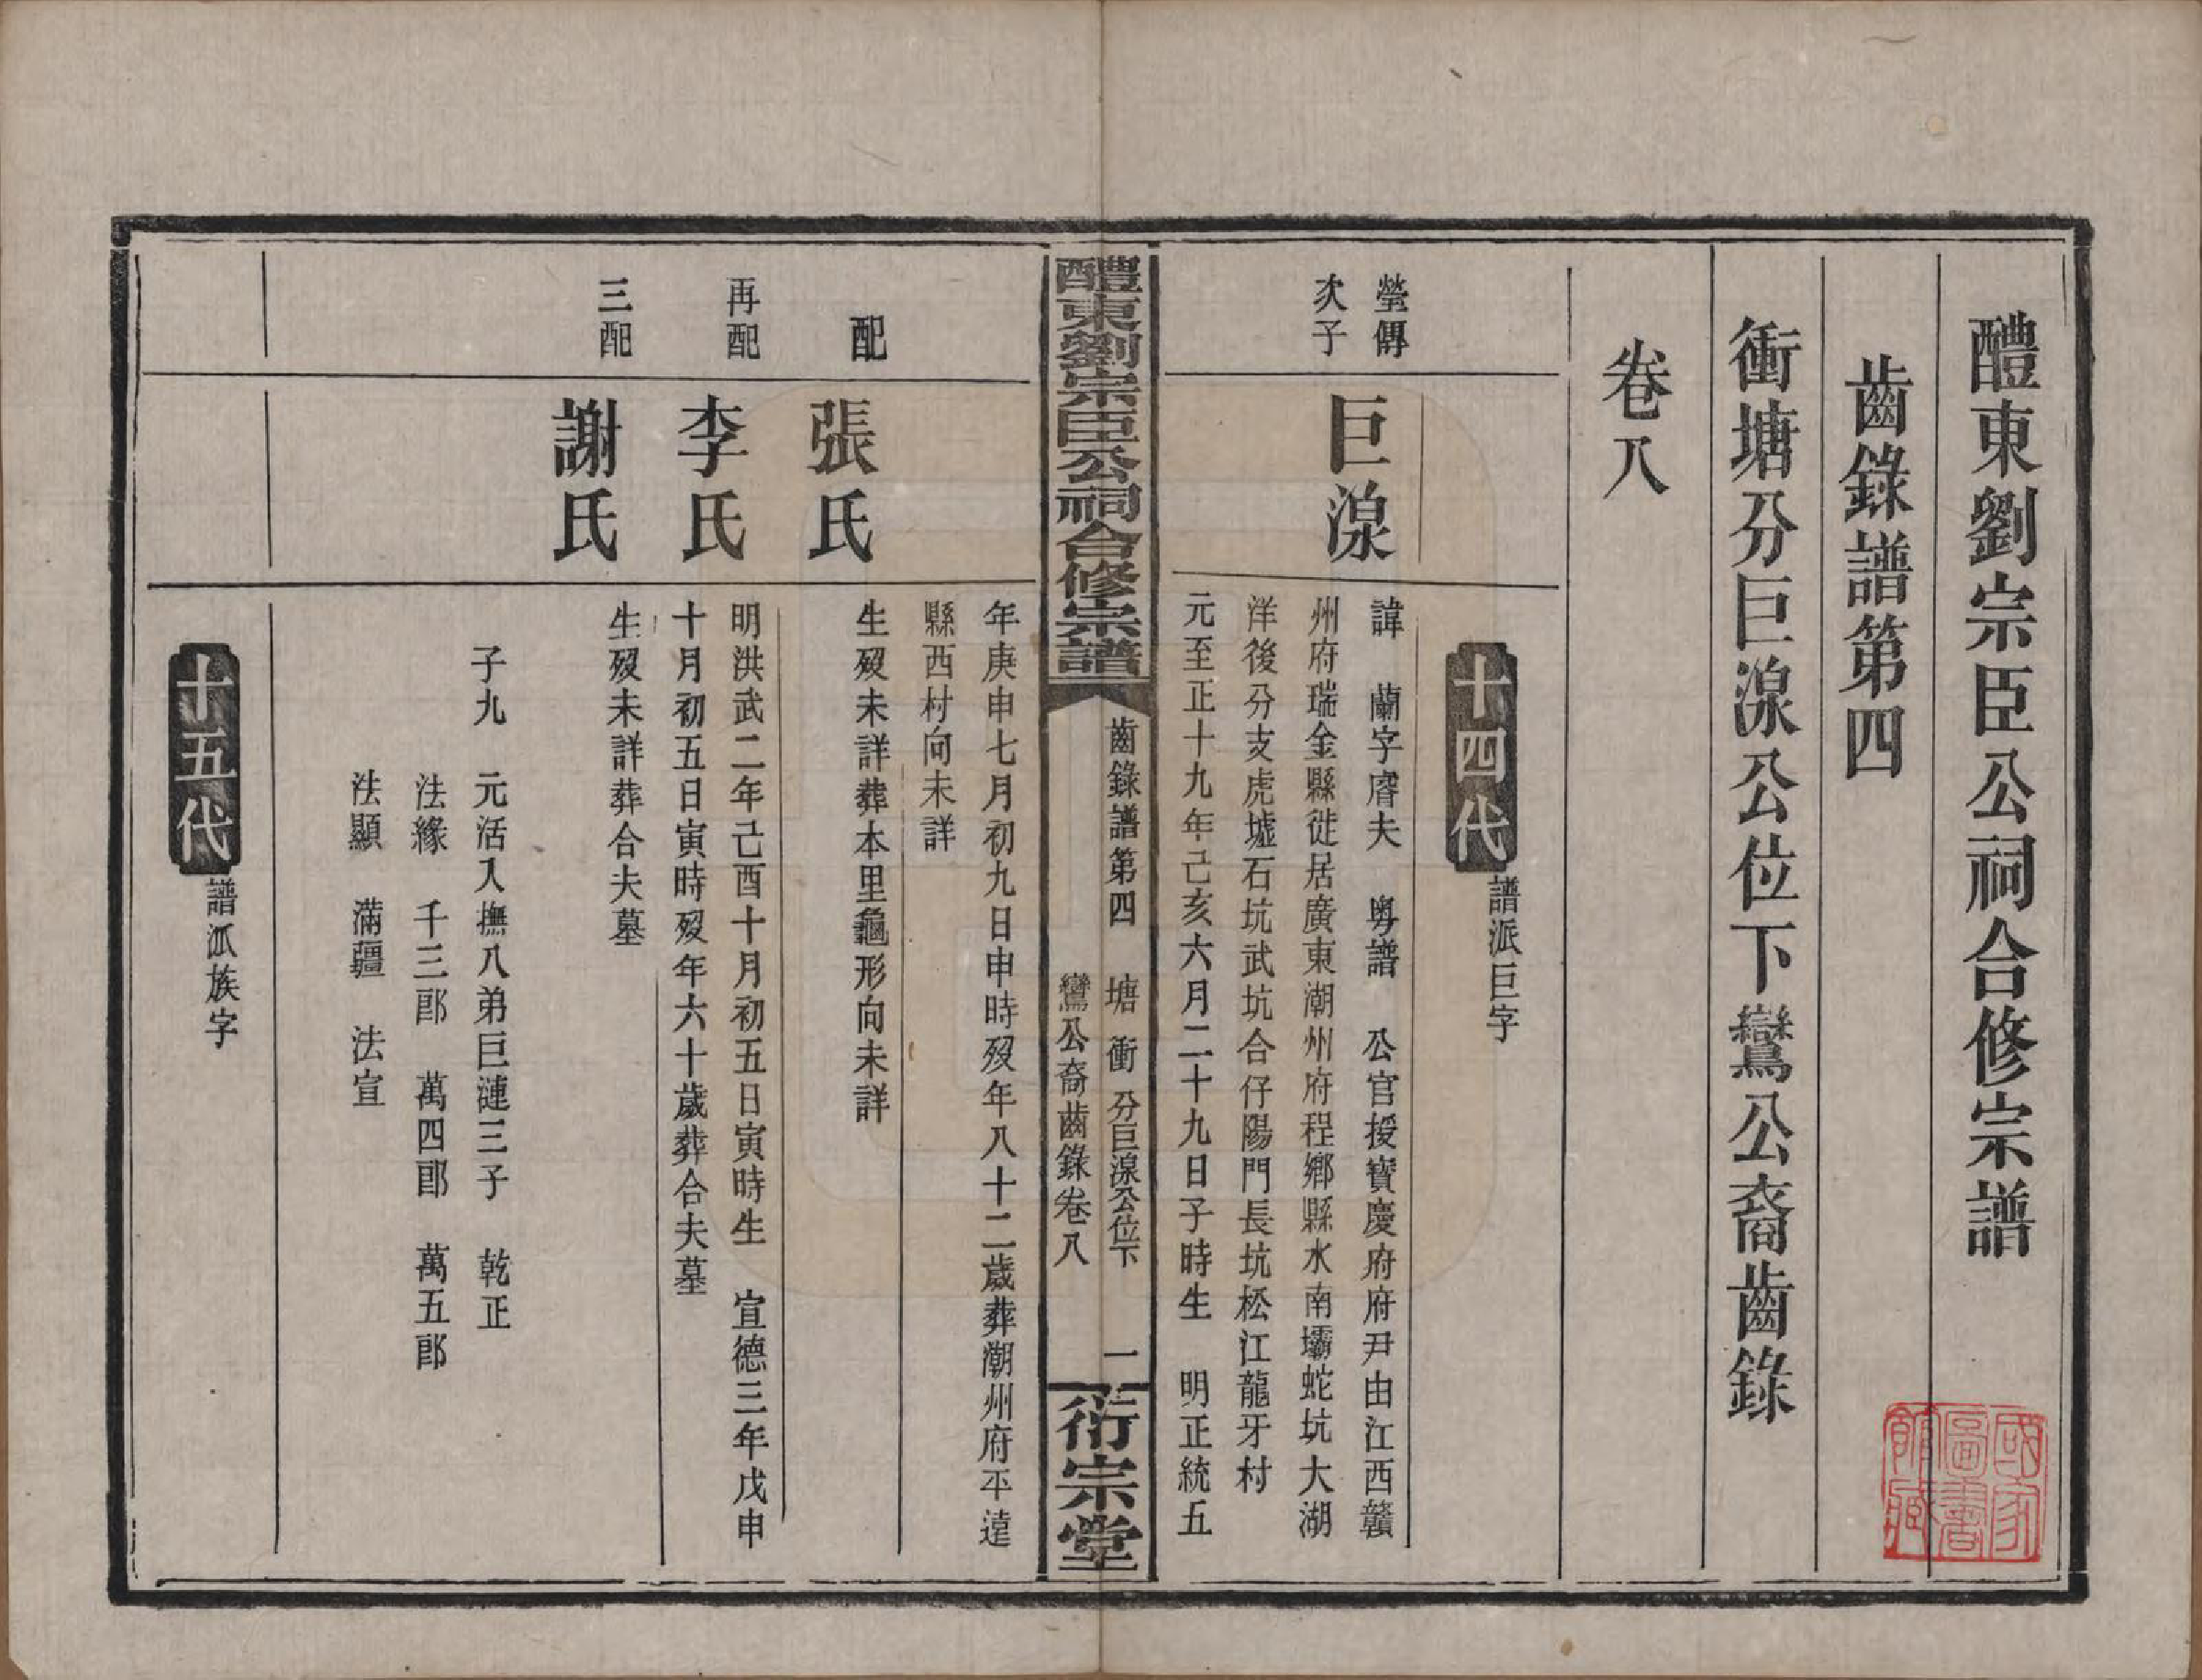 醴東劉宗臣公祠合修宗譜
齒錄譜第四
衝塘分巨湶公位下鸞公裔齒錄
卷八
十四代
譜派巨字
瑩傳
次子
巨湶
諱　蘭字睿夫　粵譜　公官授寶慶府府尹由江西贛
州府瑞金縣徙居廣東潮州府程鄉縣水南壩蛇坑大湖
洋後分支虎墟石坑武坑合仔陽門長坑松江龍牙村
元至正十九年己亥六月二十九日子時生　明正統五
醴東劉宗臣公祠合修宗譜
齒錄譜第四　塘衝　分巨湶公位下
鸞公裔齒錄卷八
一
衍宗堂
年庚申七月初九日申時歿年八十二歲葬潮州府平遠
縣西村向未詳
配
張氏
生歿未詳葬本里龜形向未詳
再配
李氏
明洪武二年己酉十月初五日寅時生　宣德三年戊申
十月初五日寅時歿年六十歲葬合夫墓
三配
謝氏
生歿未詳葬合夫墓
子九　元活入撫八弟巨漣三子　乾正
法緣　千三郎　萬四郎　萬五郎
法顯　滿疆　法宣
十五代
譜派族字
國家圖書館藏